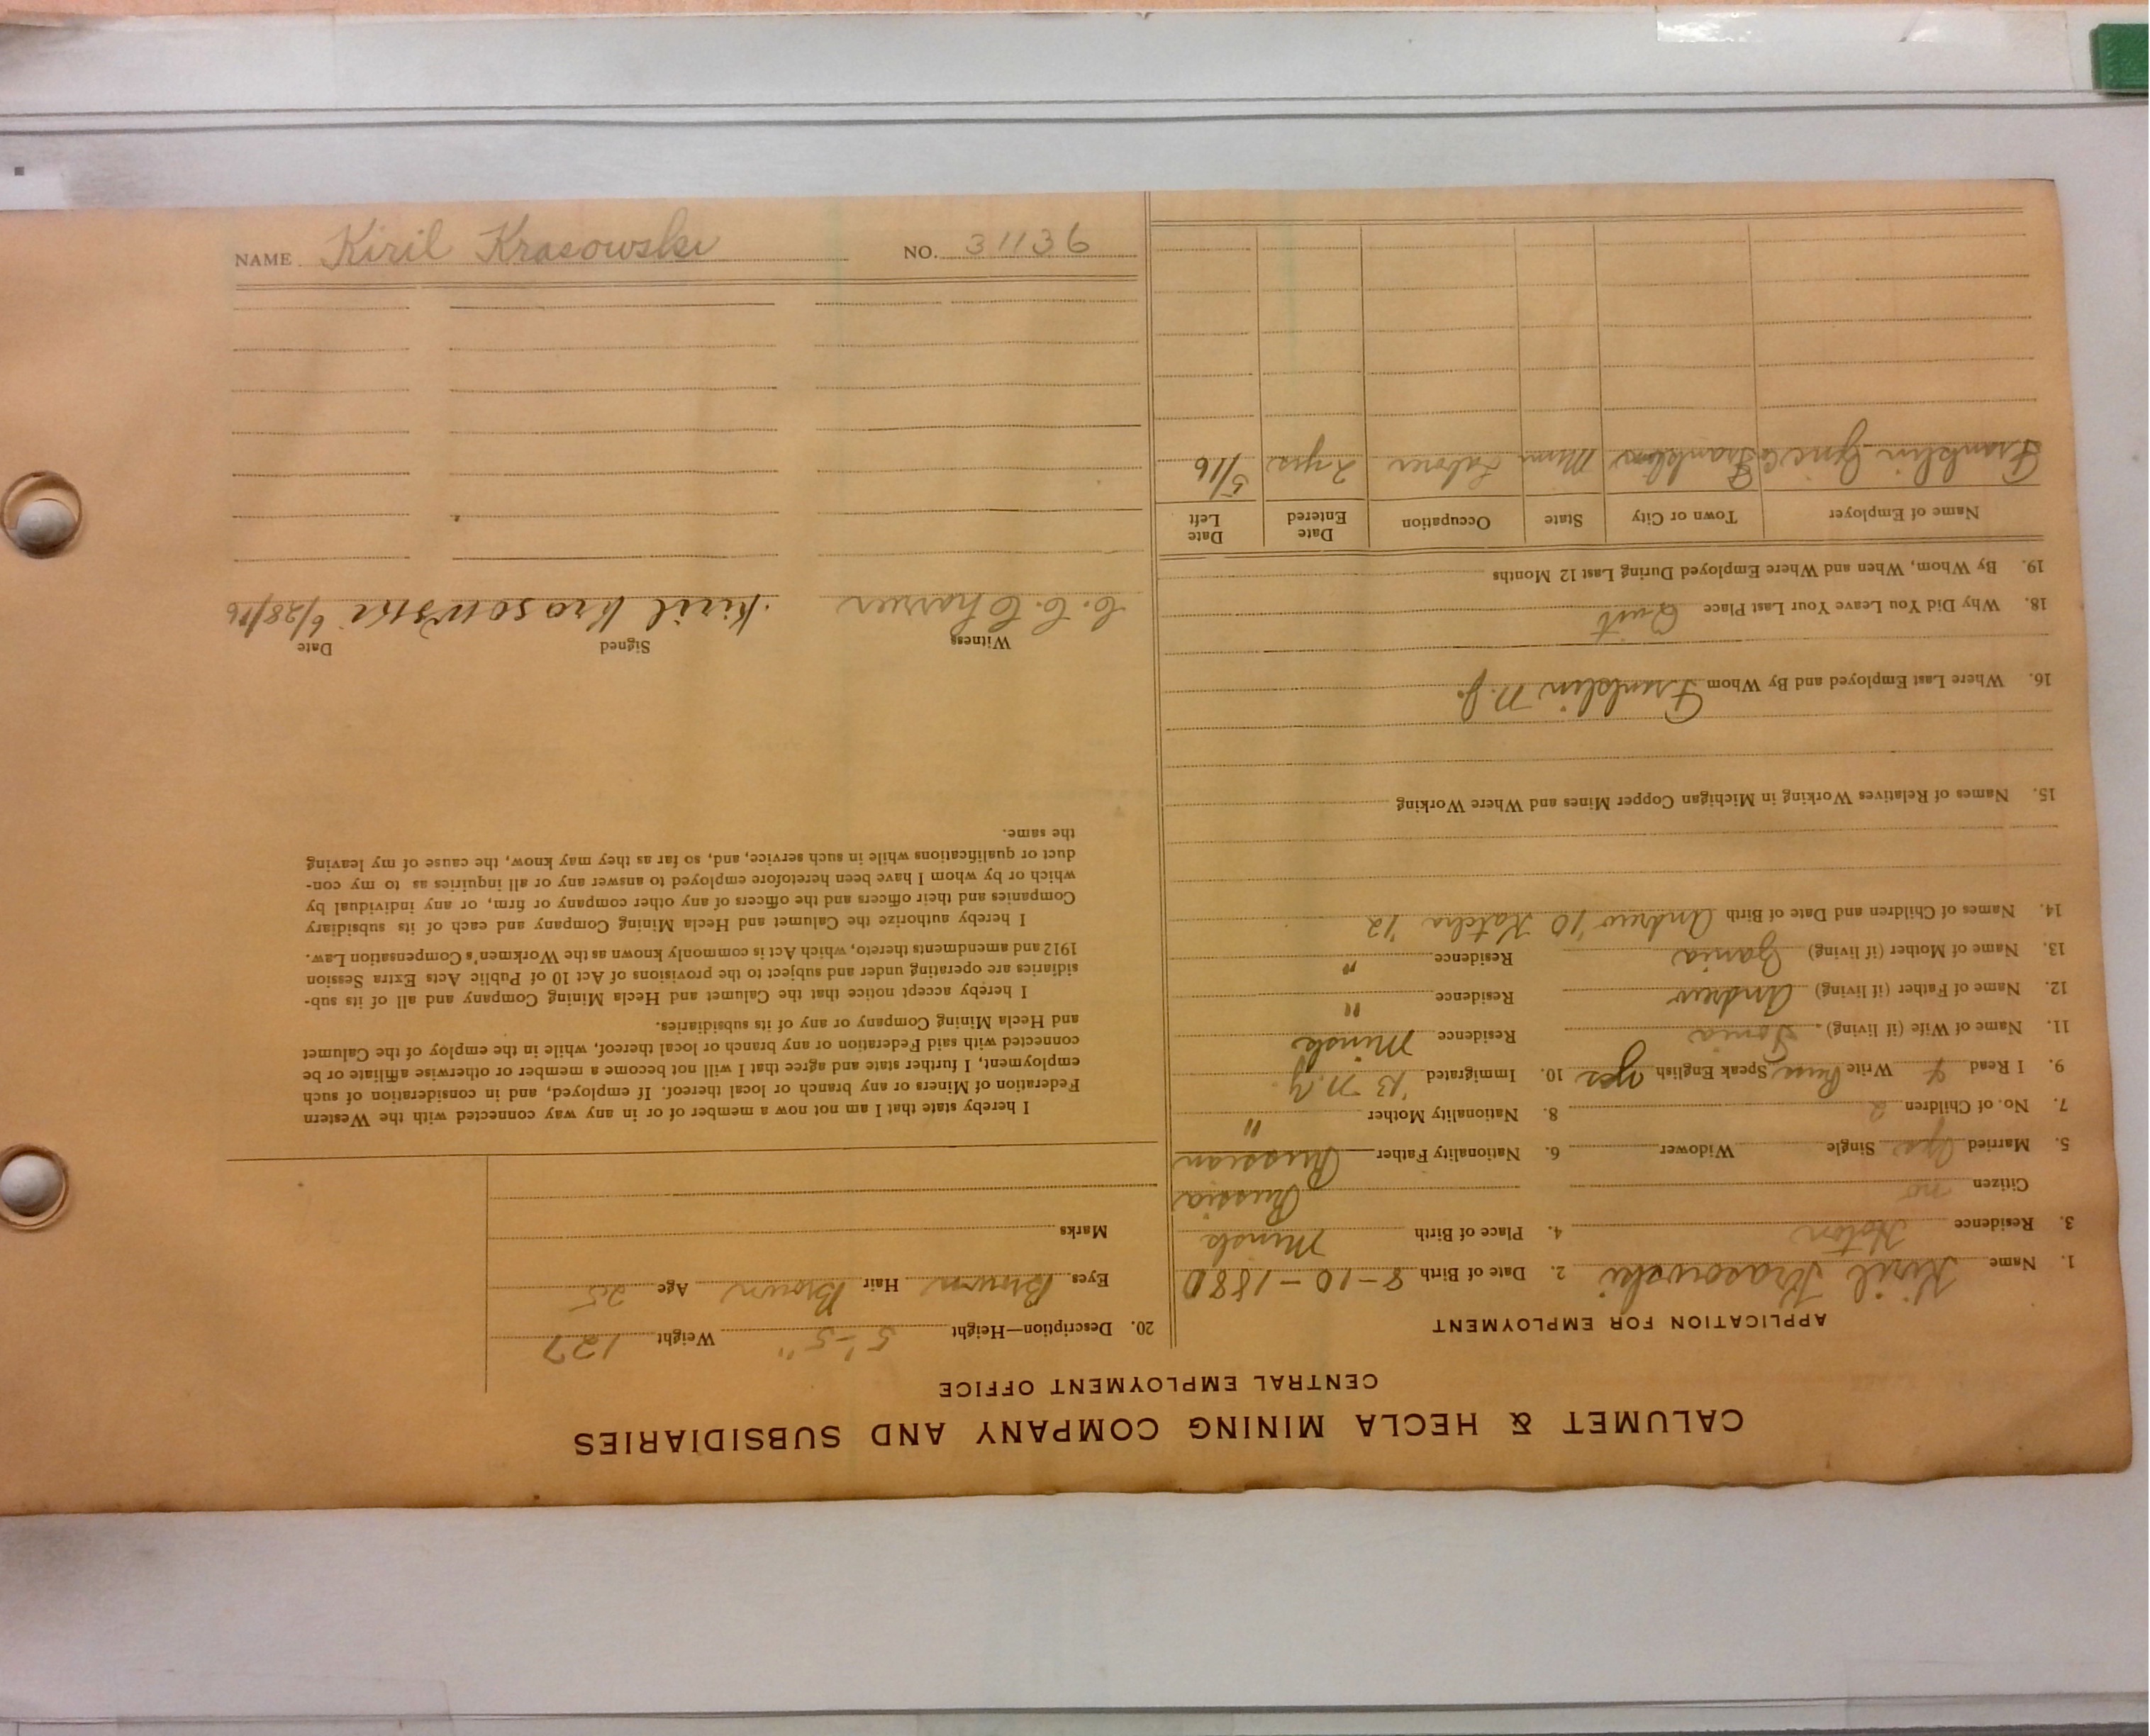 CALUMET & HECLA MINING COMPANY AND SUBSIDIARIES
CENTRAL EMPLOYMENT OFFICE
APPLICATION FOR EMPLOYMENT
1. Name Kiril Krasowski 2. Date of Birth 8-10-1880
3. Residence Hoton 4. Place of Birth Minsk
Citizen no Russia
5. Married yes Single Widower 6. Nationality Father Russian
7. No. of Children 2 8. Nationality Mother "
9. I Read & Write Russ Speak English yes 10. Immigrated '13 N.Y.
11. Name of Wife (if living) Residence Minsk
12. Name of Father (if living) Andrew Residence "
13. Name of Mother (if living) Residence "
14. Names of Children and Date of Birth Andrew '10 '12
15. Names of Relatives Working in Michigan Copper Mines and Where Working
16. Where Last Employed and By Whom Franklin N.J.
18. Why Did You Leave Your Last Place Quit
19. By Whom, When and Where Employed During Last 12 Months
Name of Employer Town or City State Occupation Date Entered Date Left
Franklin Zinc Co Franklin Laborer 2 yrs 5/16
20. Description—Height 5'-5" Weight 127
Eyes Brown Hair Brown Age 25
Marks
I hereby state that I am not now a member of or in any way connected with the Western
Federation of Miners or any branch or local thereof. If employed, and in consideration of such
employment, I further state and agree that I will not become a member or otherwise affiliate or be
connected with said Federation or any branch or local thereof, while in the employ of the Calumet
and Hecla Mining Company or any of its subsidiaries.
I hereby accept notice that the Calumet and Hecla Mining Company and all of its sub-
sidiaries are operating under and subject to the provisions of Act 10 of Public Acts Extra Session
1912 and amendments thereto, which Act is commonly known as the Workmen's Compensation Law.
I hereby authorize the Calumet and Hecla Mining Company and each of its subsidiary
Companies and their officers and the officers of any other company or firm, or any individual by
which or by whom I have been heretofore employed to answer any or all inquiries as to my con-
duct or qualifications while in such service, and, so far as they may know, the cause of my leaving
the same.
Witness Signed Date
C. C. Kiril Krosowski 6/28/16
NAME Kiril Krasowski NO. 31136